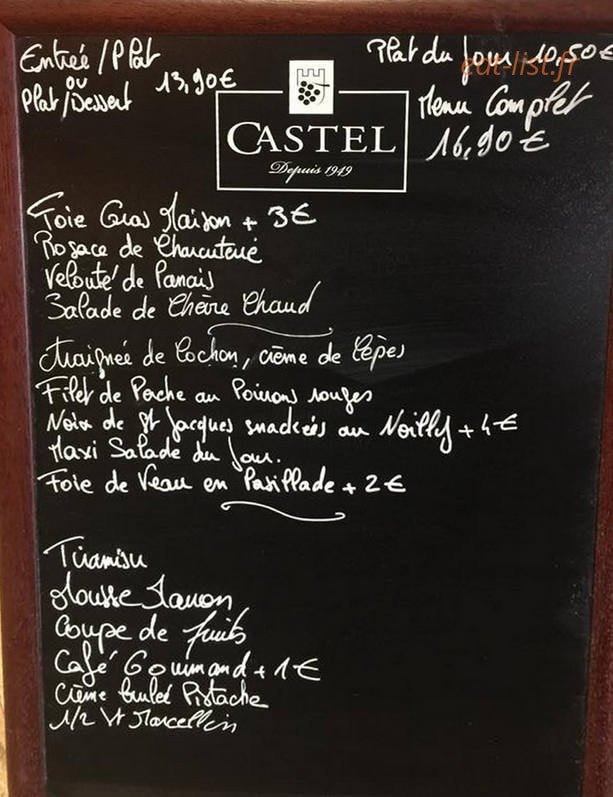 Entrée / Plat
ou
Plat / Dessert
13,90 €
Plat du Jour 10,50 €
eat-list.fr
Menu Complet
16,90 €
CASTEL
Depuis 1949
Foie Gras Maison + 3 €
Rosace de Charcuterie
Velouté de Panais
Salade de Chèvre Chaud
Araignée de Cochon, crème de Cèpes
Filet de Perche au Poivrons rouges
Noix de St Jacques snackées au Noilly + 4 €
Maxi Salade du Jour.
Foie de Veau en Persillade + 2 €
Tiramisu
Mousse Marron
Coupe de fruits
Café Gourmand + 1 €
Crème brulée Pistache
1/2 St Marcellin